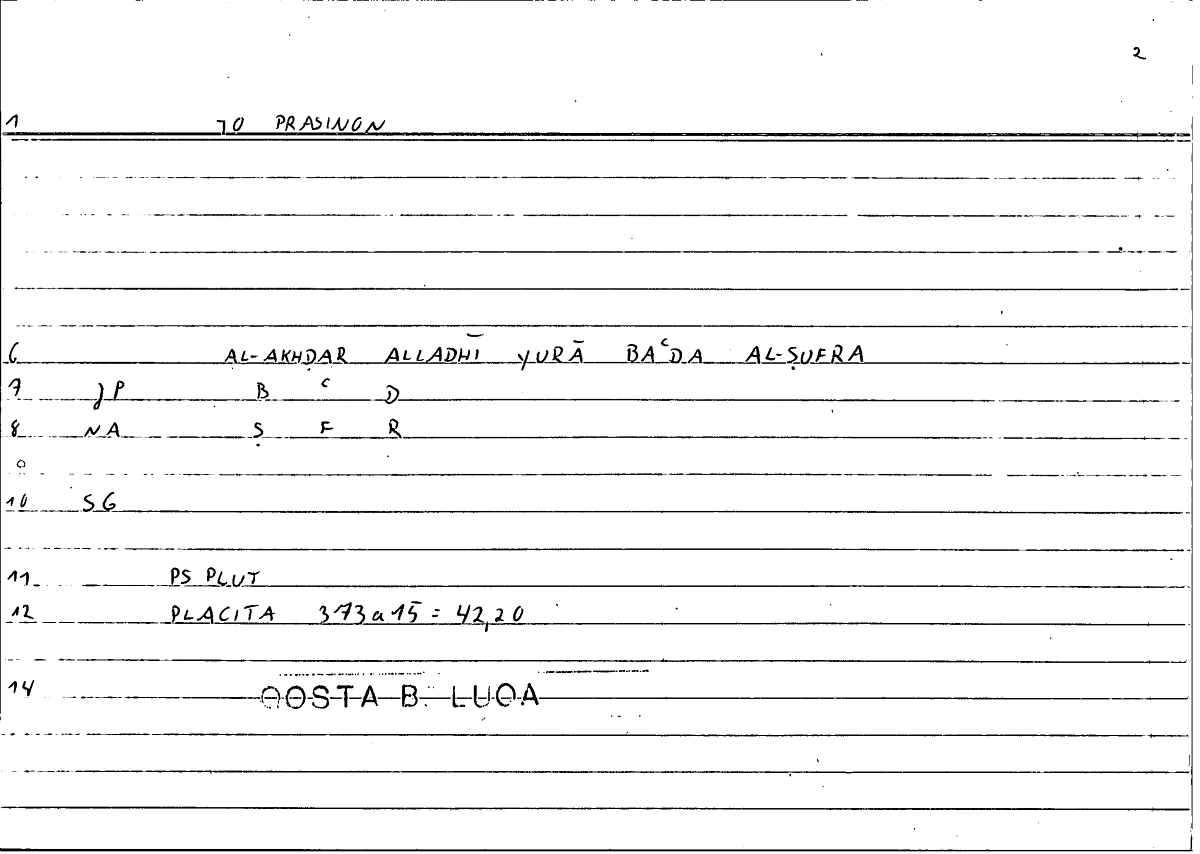 2
1 TO PRASINON
6 AL-AKHḌAR ALLADHĪ YURĀ BAʿDA AL-ṢUFRA
7 JP B ʿ D
8 NA Ṣ F R
9
10 SG
11 PS PLUT
12 PLACITA 373a15 = 42,20
14 QOSTA B. LUQA